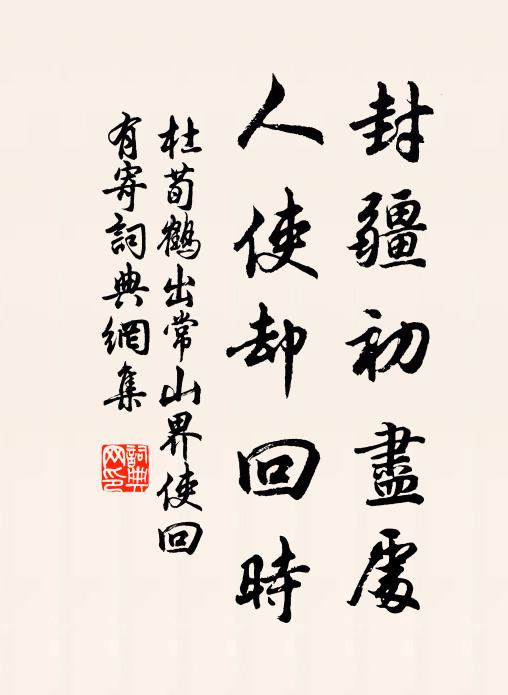 封疆初盡處
人使却回時
杜荀鶴出常山界使回
有寄詞典網集
詞典
网印